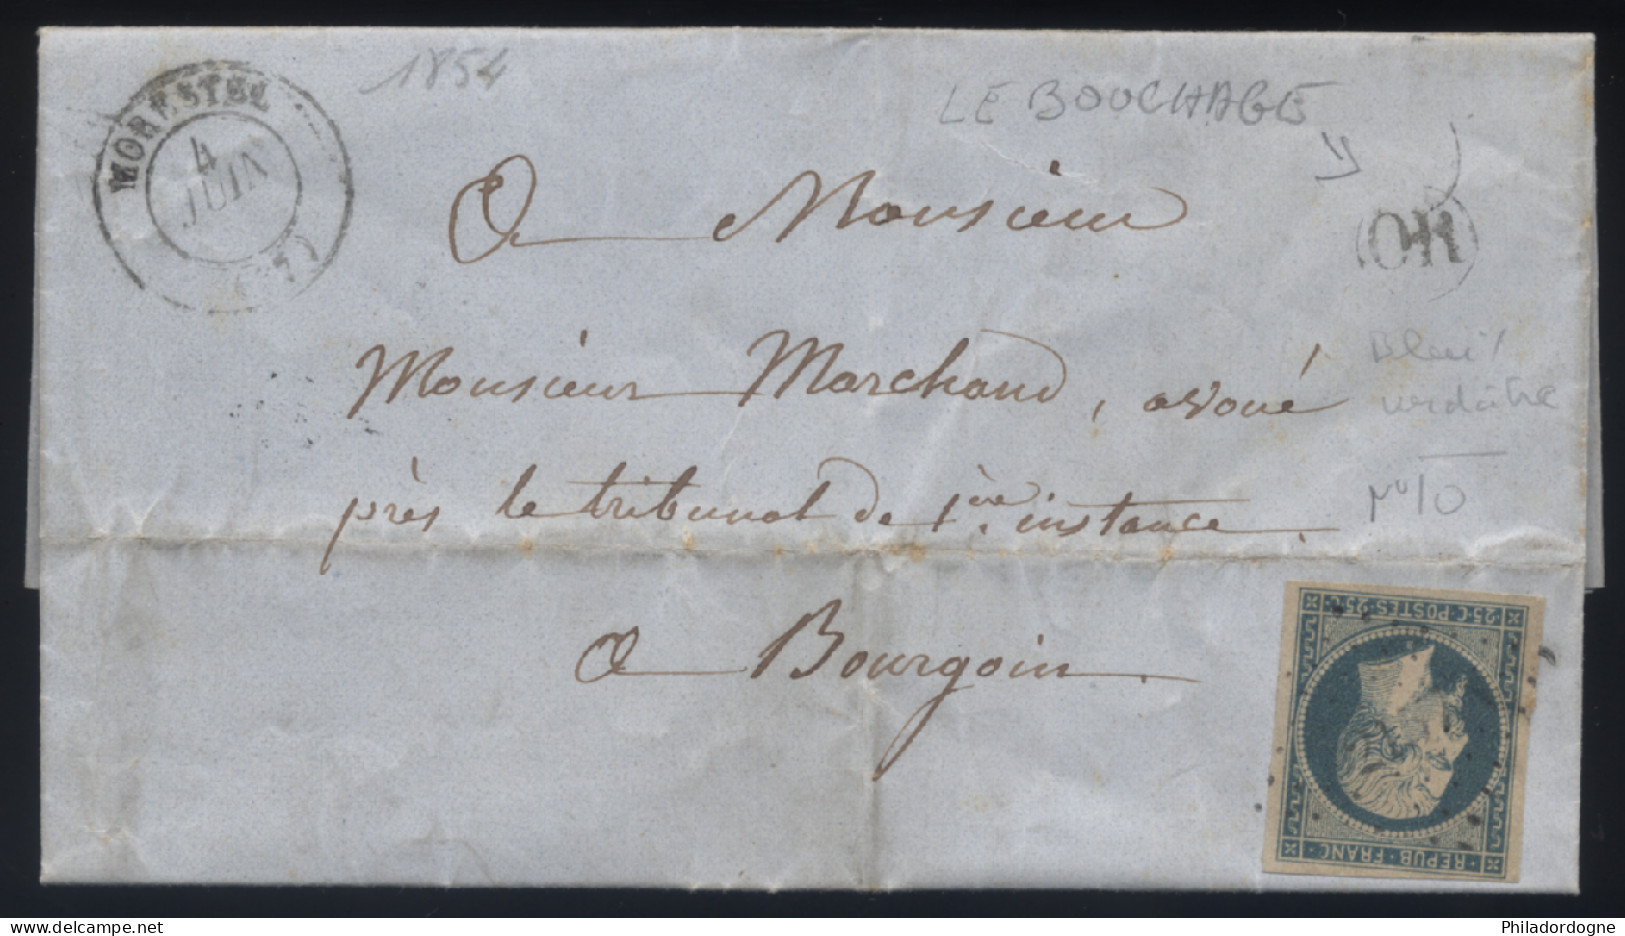 1854
LE BOUCHAGE
MORESTEL
4
JUIN
(37)
OR
A Monsieur
Monsieur Marchand, avoué
près le tribunal de 1ère instance.
A Bourgoin.
Bleu
verdâtre
N° 10
25·C·POSTES·25·C
REPUB·FRANC·
Philadordogne